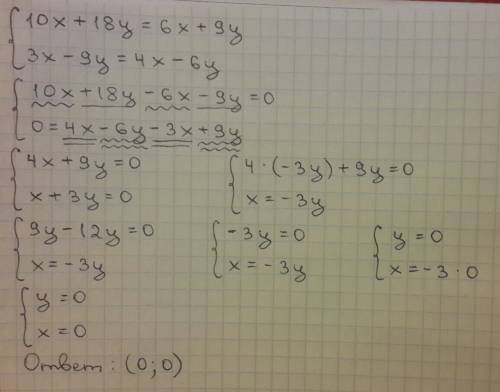 10x + 18y = 6x + 9y
3x - 9y = 4x - 6y
10x + 18y - 6x - 9y = 0
0 = 4x - 6y - 3x + 9y
4x + 9y = 0
x + 3y = 0
4 · (-3y) + 9y = 0
x = -3y
9y - 12y = 0
x = -3y
-3y = 0
x = -3y
y = 0
x = -3 · 0
y = 0
x = 0
Ответ: (0; 0)